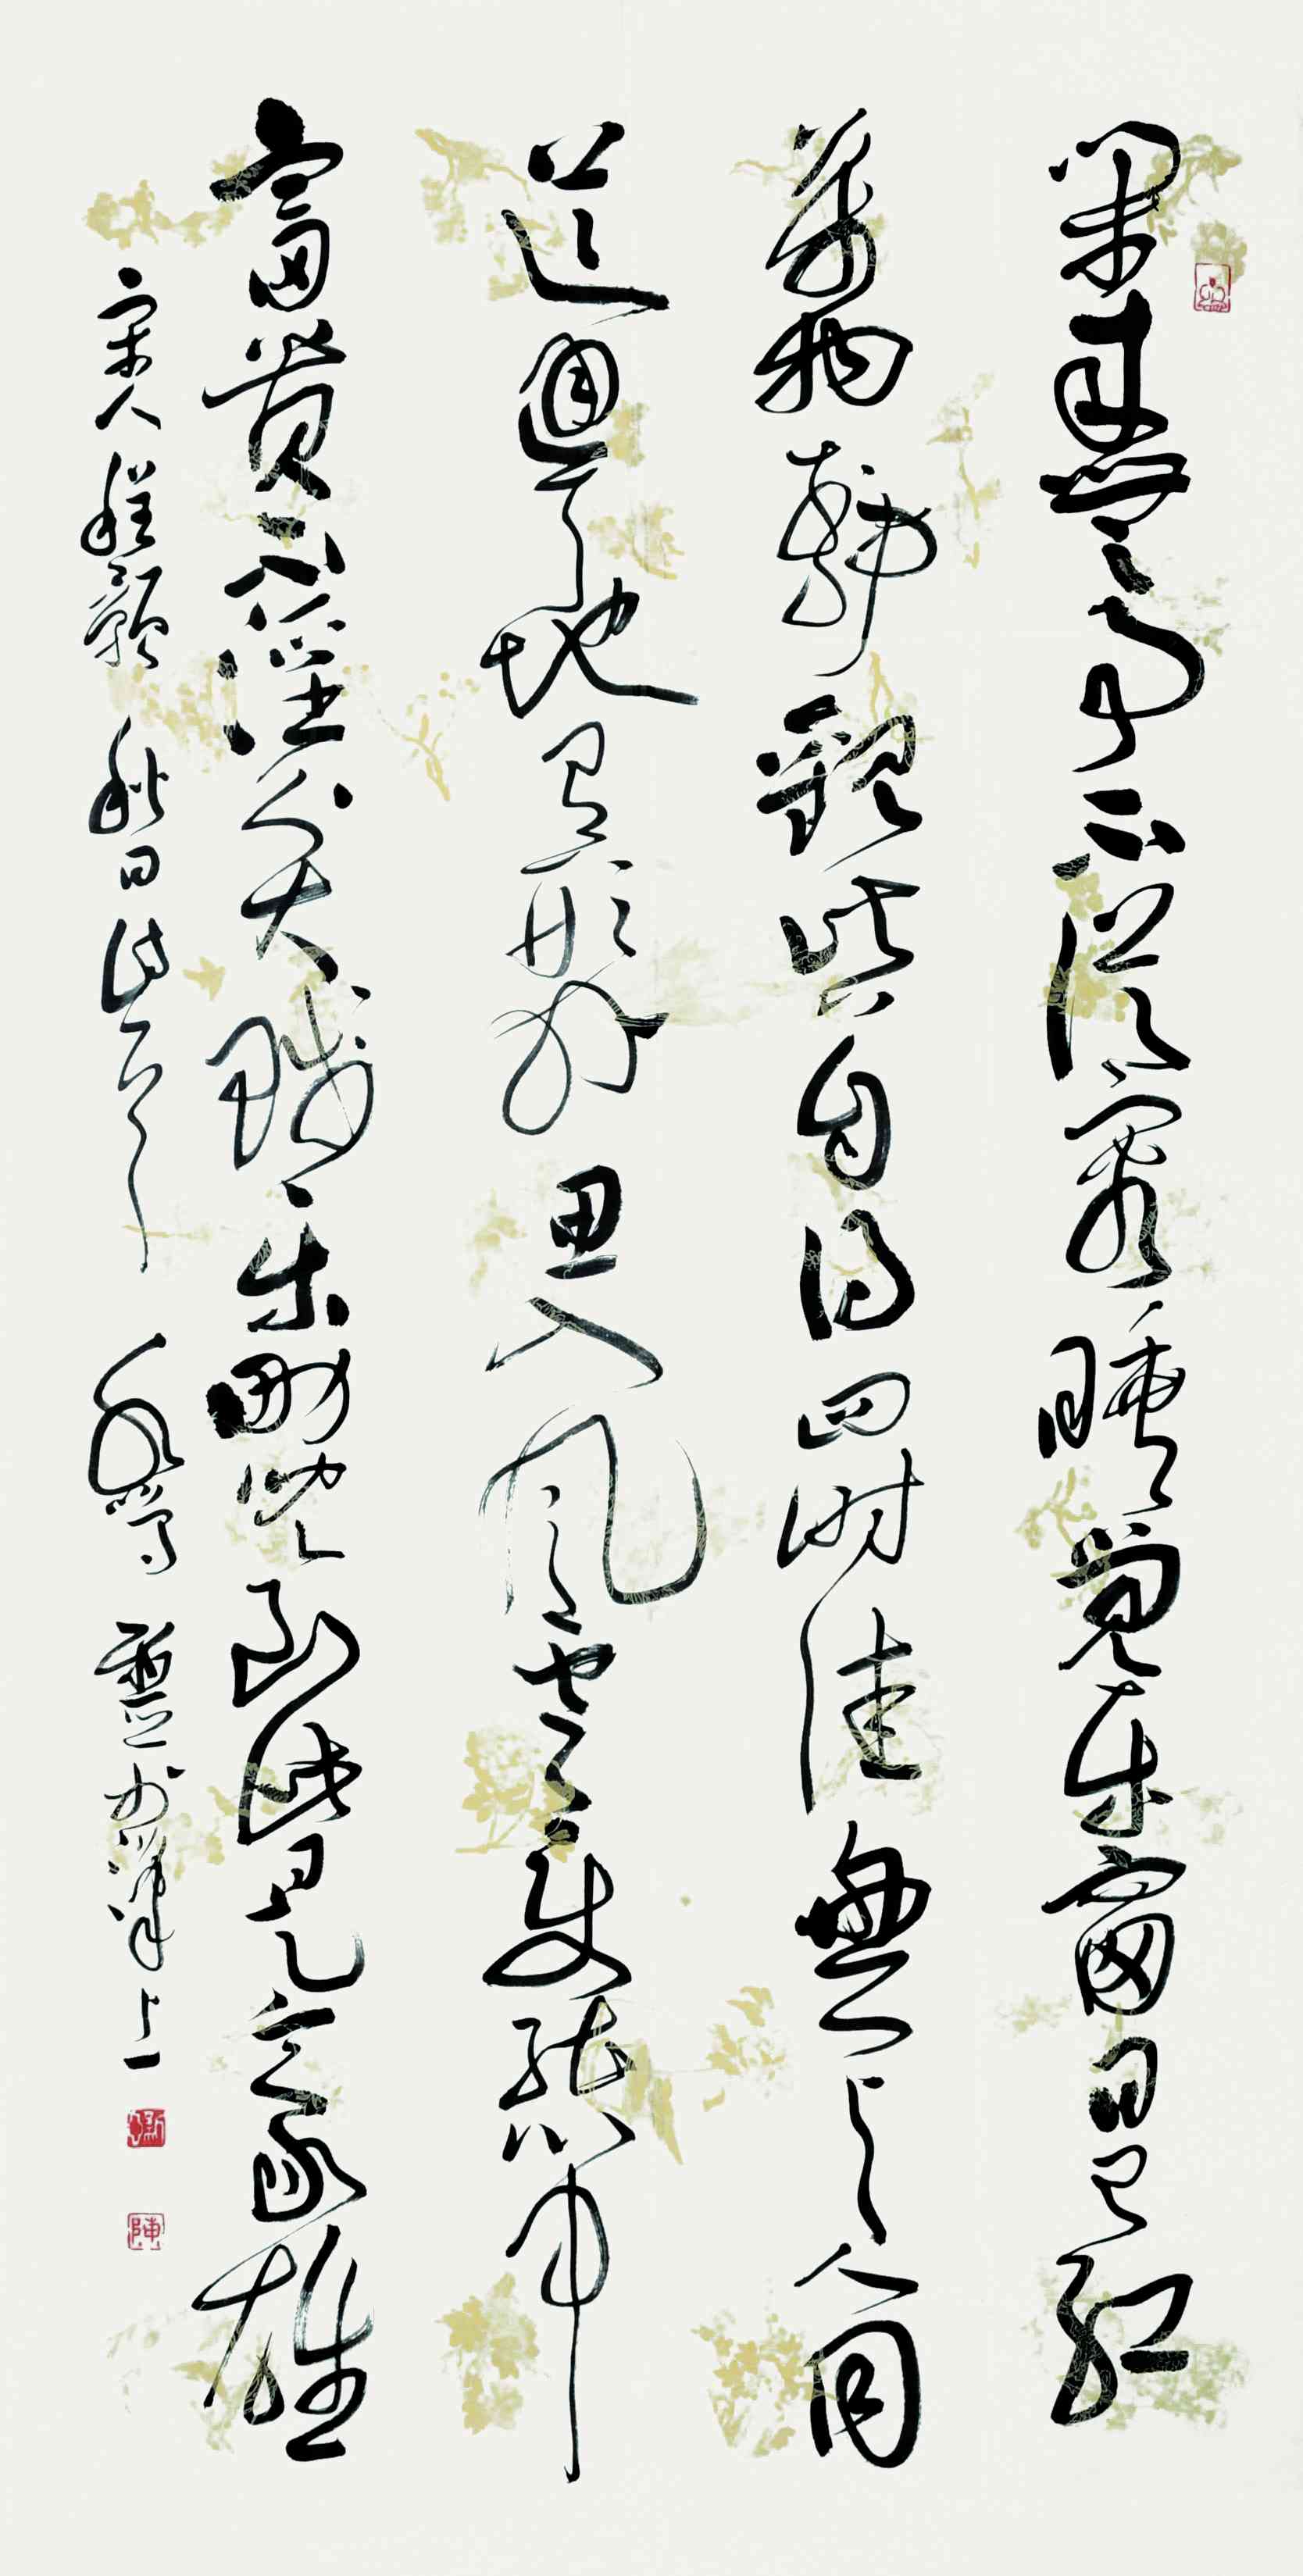 閑來無事不從容睡覺東窗日已紅
萬物靜觀皆自得四時佳興與人同
道通天地有形外思入風雲變態中
富貴不淫貧賤樂男兒到此是豪雄
宋人程顥秋日詩一首
陳